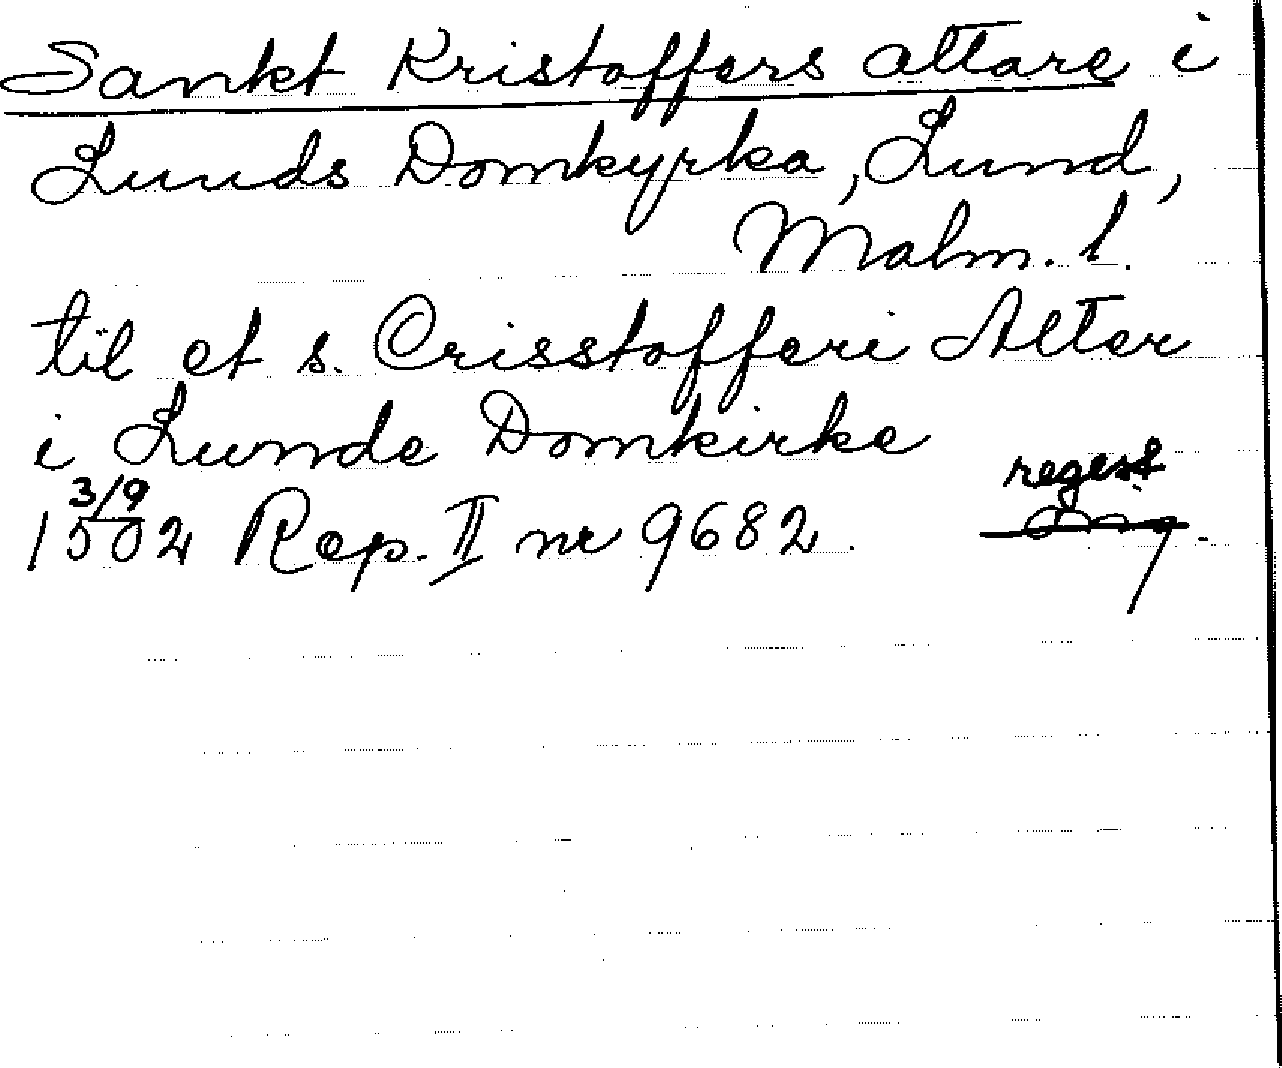 Sankt Kristoffers altare i
Lunds Domkyrka, Lund,
Malm. l.
til et s. Crisstofferi Alter
i Lunde Domkirke
regest
3/9
1502 Rep. II nr 9682.